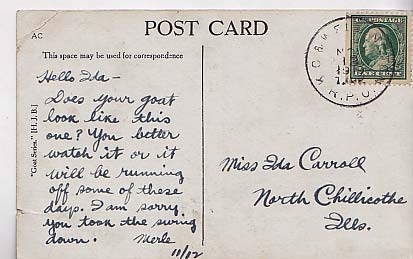 AC
POST CARD
This space may be used for correspondence
Hello Ida-
Does your goat
look like this
one? You better
watch it or it
will be running
off some of these
days. I am sorry
you took the swing
down. Merle
11/12
"Goat Series." [H.J.B.]
Miss Ida Carroll
North Chillicothe
Ills.
R.P.O.